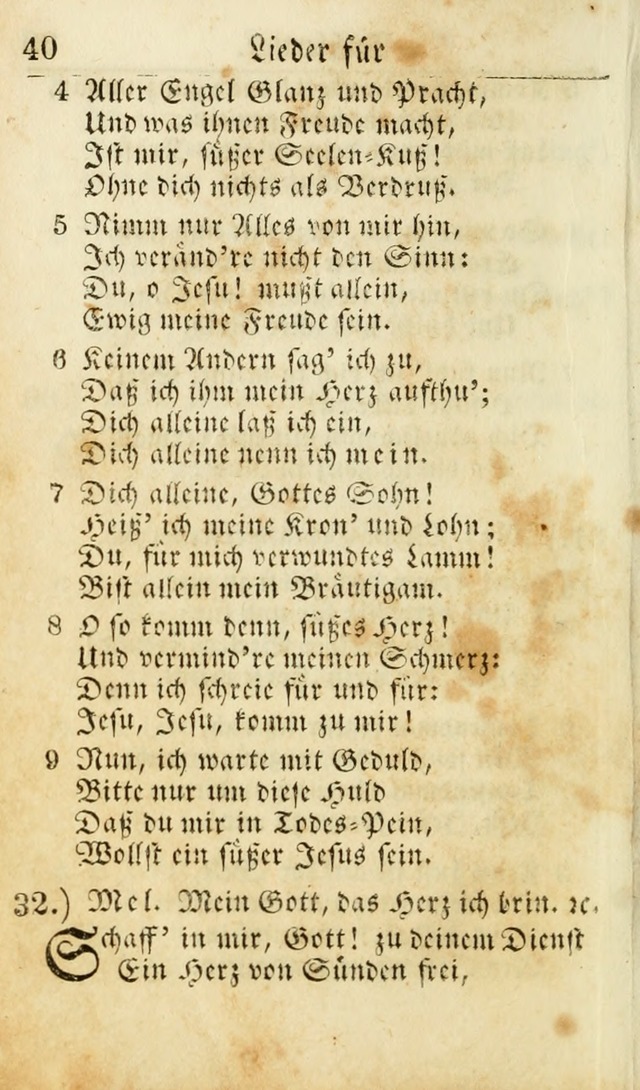 40 Lieder für
4 Aller Engel Glanz und Pracht,
Und was ihnen Freude macht,
Ist mir, süßer Seelen-Kuß!
Ohne dich nichts als Verdruß.
5 Nimm nur Alles von mir hin,
Ich veränd're nicht den Sinn:
Du, o Jesu! mußt allein,
Ewig meine Freude sein.
6 Keinem Andern sag' ich zu,
Daß ich ihm mein Herz aufthu';
Dich alleine laß ich ein,
Dich alleine nenn ich mein.
7 Dich alleine, Gottes Sohn!
Heiß' ich meine Kron' und Lohn;
Du, für mich verwundtes Lamm!
Bist allein mein Bräutigam.
8 O so komm denn, süßes Herz!
Und vermind're meinen Schmerz:
Denn ich schreie für und für:
Jesu, Jesu, komm zu mir!
9 Nun, ich warte mit Geduld,
Bitte nur um diese Huld
Daß du mir in Todes-Pein,
Wollst ein süßer Jesus sein.
32.) Mel. Mein Gott, das Herz ich brin. ꝛc.
Schaff' in mir, Gott! zu deinem Dienst
Ein Herz von Sünden frei,